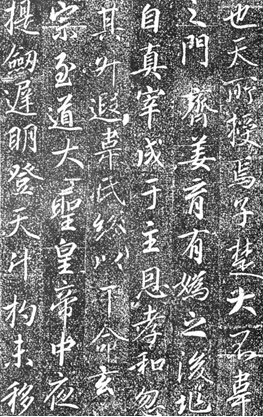 也天所授焉子楚大韋
之門齊姜育有媯之後
自真宰成于主恩孝和忽
其升遐韋氏以命玄
宗至道大聖皇帝中夜
提劔遲明登天斗杓未移